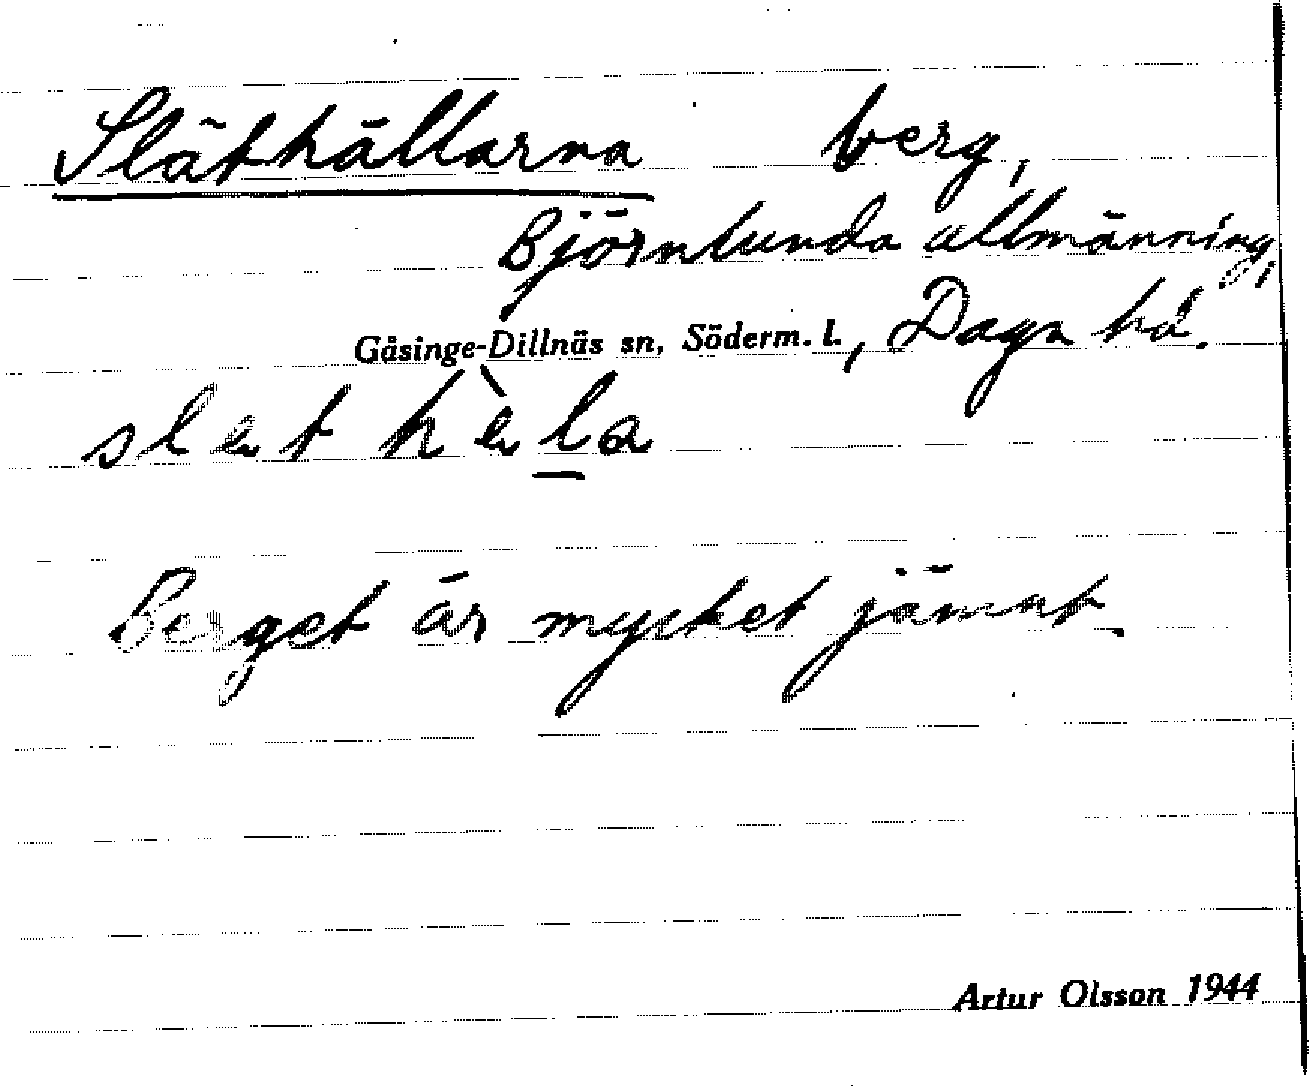 Släthällarna berg,
Björnlunda allmänning,
Gåsinge-Dillnäs sn, Söderm. l., Daga hd.
slet hèla
Berget är mycket jämnt.
Artur Olsson 1944